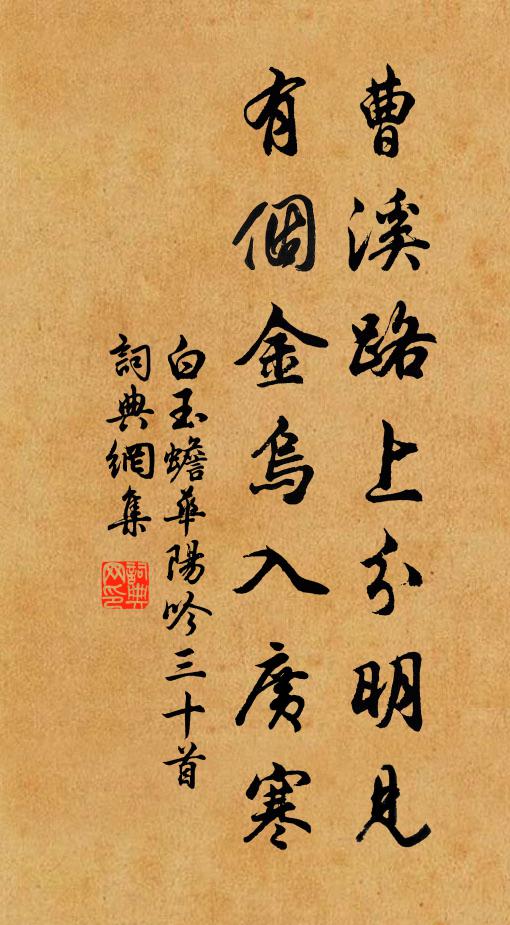 曹溪路上分明見
有個金烏入廣寒
白玉蟾華陽吟三十首
詞典網集
詞典網印